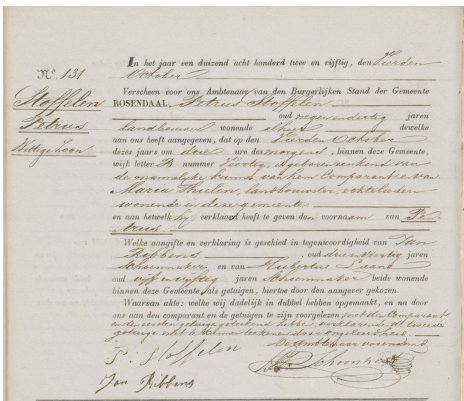 N.º 131
Stoffelen
Petrus
Wettig zoon
In het jaar een duizend acht honderd twee en vijftig, den Vierden
October
Verscheen voor ons Ambtenaar van den Burgerlijken Stand der Gemeente
ROSENDAAL, Petrus Stoffelen
oud negenendertig jaren
landbouwer wonende alhier dewelke
aan ons heeft aangegeven, dat op den Vierden October
dezes jaars om drie ure des morgens, binnen deze Gemeente,
wijk letter B nummer Veertig, is geboren een kind van
de mannelijke kunne, van hem Comparant en van
Maria Thielen, landbouwster, echtelieden
wonende in deze gemeente
en aan hetwelk hij verklaard heeft te geven den voornaam van Pe-
trus
Welke aangifte en verklaring is geschied in tegenwoordigheid van Jan
Ribbens, oud jaren
Schoenmaker en van Huibertus
oud vijf en vijftig jaren Schoenmaker beide wonende
binnen deze Gemeente, als getuigen, hiertoe door den aangever gekozen.
Waarvan akte: welke wij dadelijk in dubbel hebben opgemaakt, en na door
ons aan den comparant en de getuigen te zijn voorgelezen, met de Comparant
en de eerste getuige geteekend hebben, verklarende de tweede
getuige niet te kunnen teekenen door ongeleerdheid
De Ambtenaar voornoemd
P. Stoffelen
Jan Ribbens